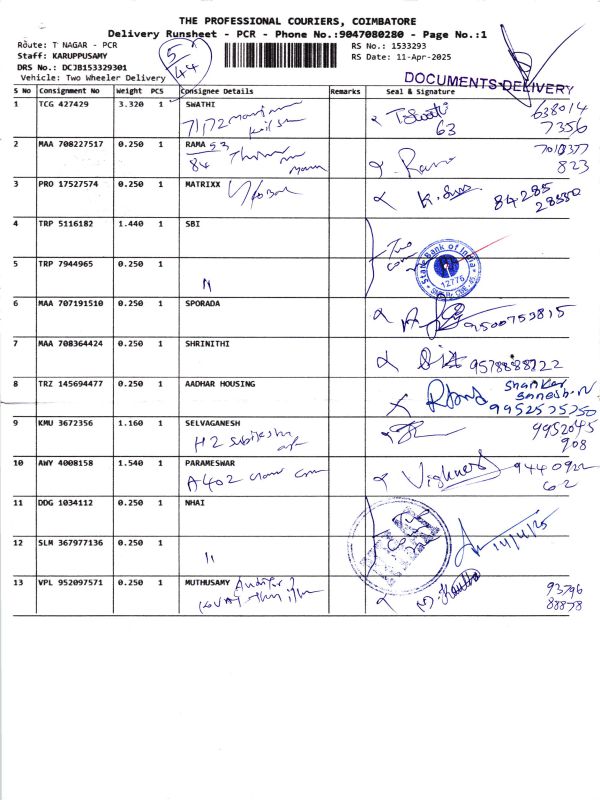 THE PROFESSIONAL COURIERS, COIMBATORE
Delivery Runsheet - PCR - Phone No.:9047080280 - Page No.:1
Route: T NAGAR - PCR
Staff: KARUPPUSAMY
DRS No.: DCJB153329301
Vehicle: Two Wheeler Delivery
5/44
RS No.: 1533293
RS Date: 11-Apr-2025
DOCUMENTS-DELIVERY
S No Consignment No Weight PCS Consignee Details Remarks Seal & Signature
1 TCG 427429 3.320 1 SWATHI
71/72
63
638014
7356
2 MAA 708227517 0.250 1 RAMA 53
84
Rama
823
3 PRO 17527574 0.250 1 MATRIXX
84285
28550
4 TRP 5116182 1.440 1 SBI
State Bank of India
12776
5 TRP 7944965 0.250 1
"
6 MAA 707191510 0.250 1 SPORADA
9500753815
7 MAA 708364424 0.250 1 SHRINITHI
8 TRZ 145694477 0.250 1 AADHAR HOUSING
Shanker
9952575750
9 KMU 3672356 1.160 1 SELVAGANESH
H2
9952045
908
10 AWY 4008158 1.540 1 PARAMESWAR
A402
Vighnesh
9440922
62
11 DDG 1034112 0.250 1 NHAI
12 SLM 367977136 0.250 1
"
14/4/25
13 VPL 952097571 0.250 1 MUTHUSAMY
93796
88878